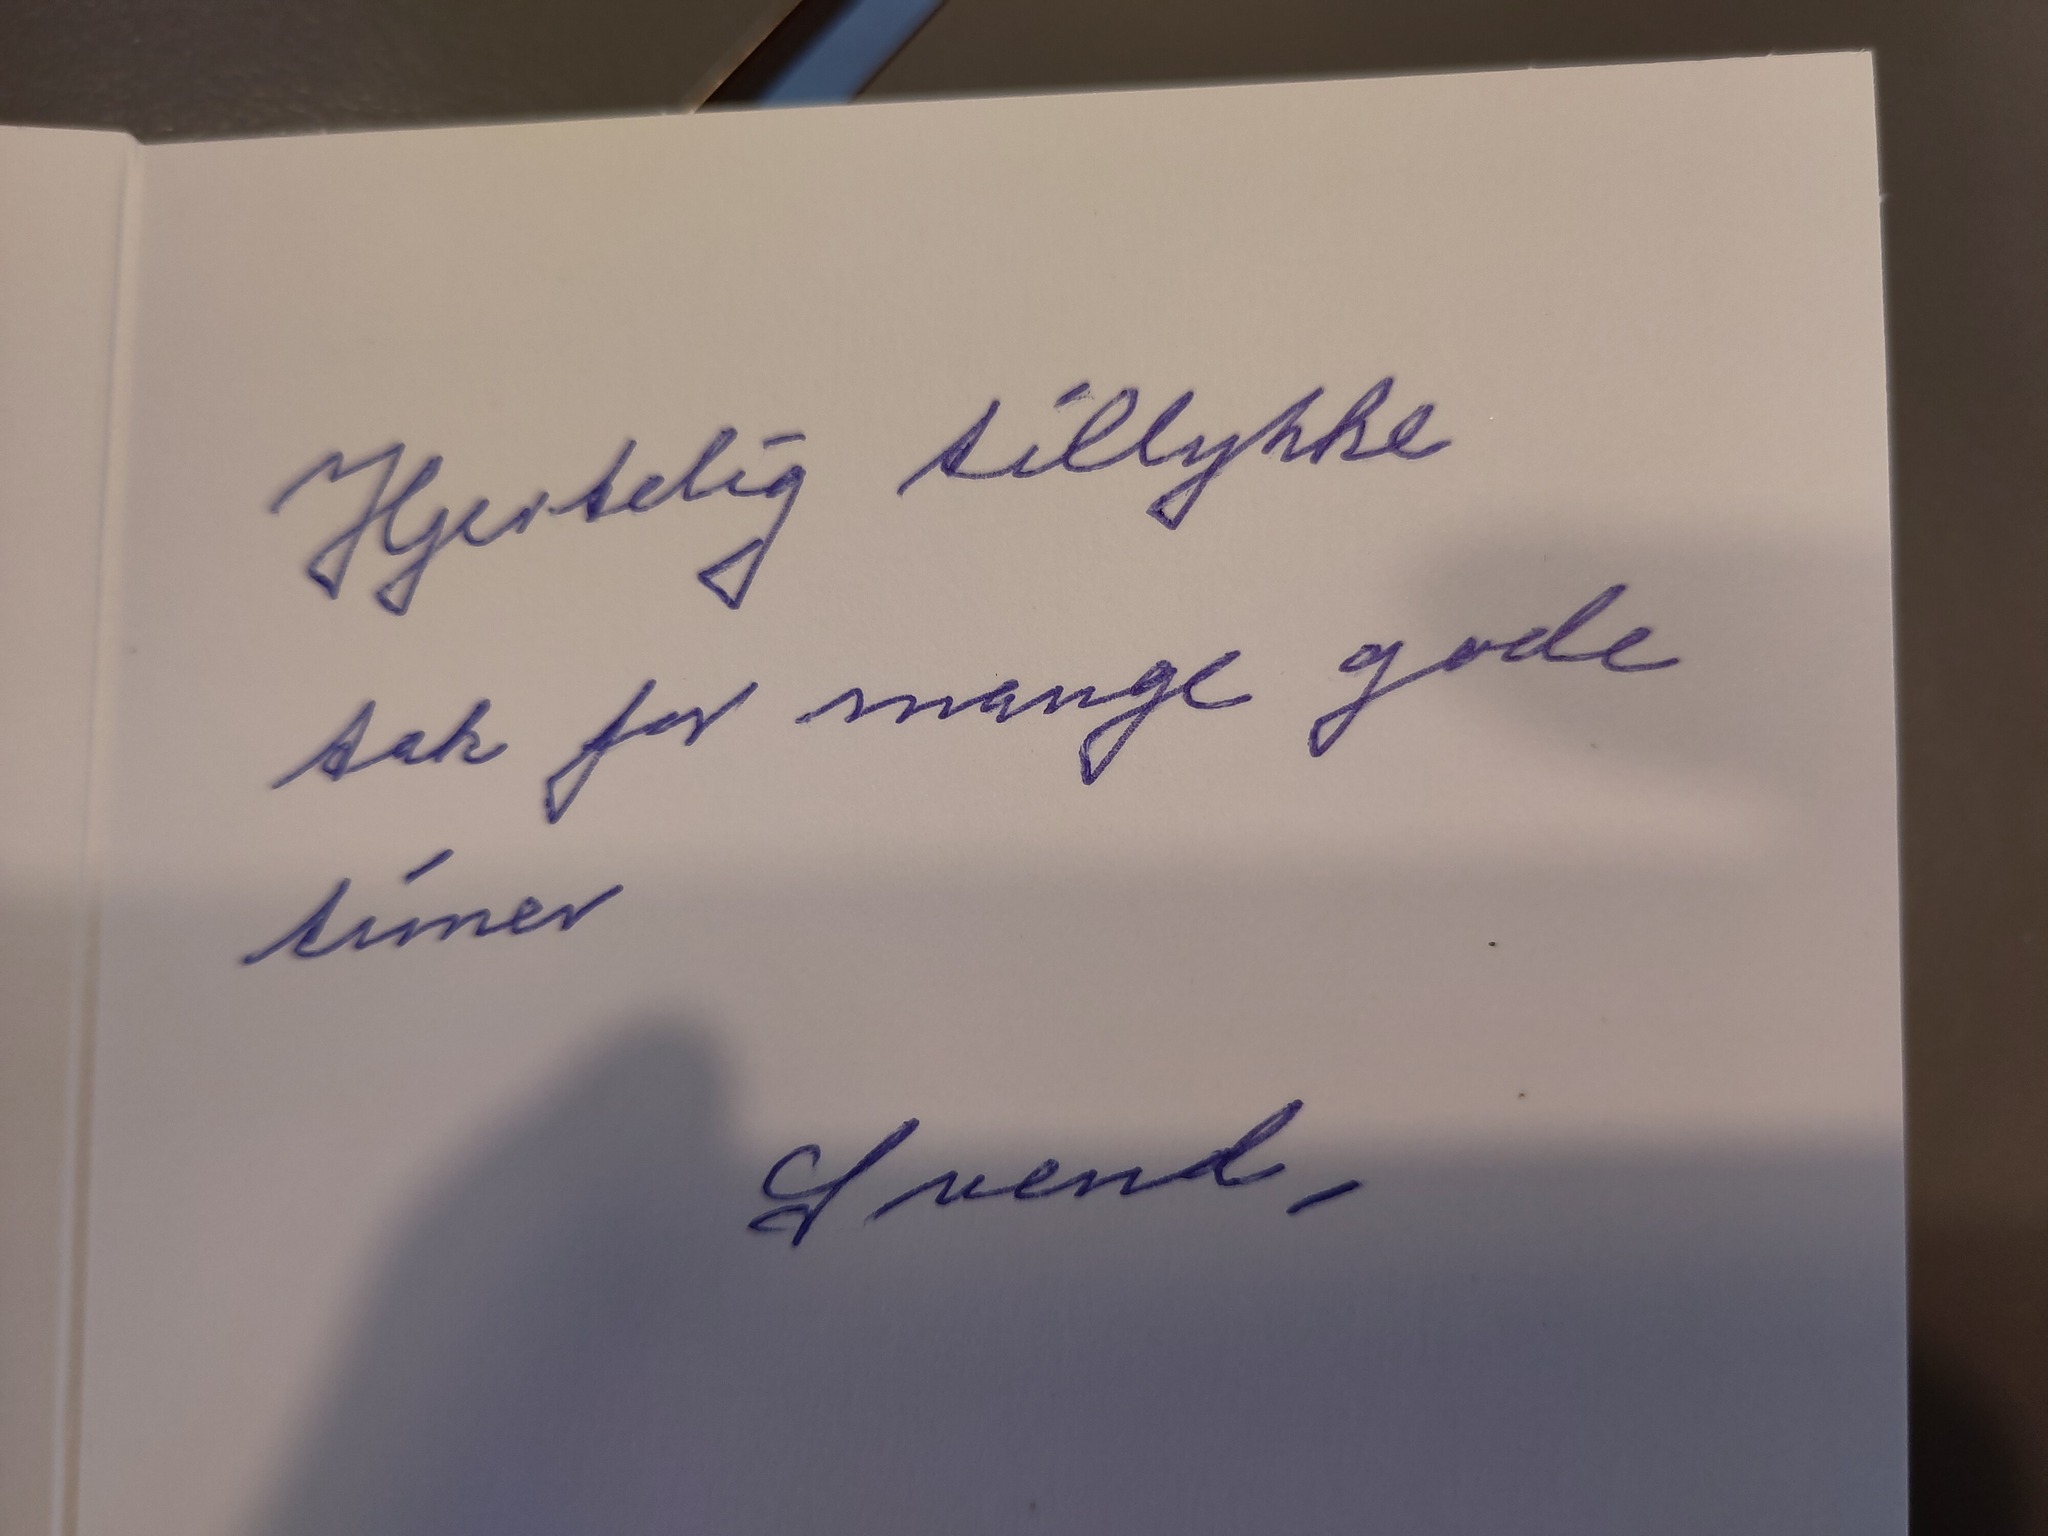 Hjertelig tillykke
tak for mange gode
timer
Svend,